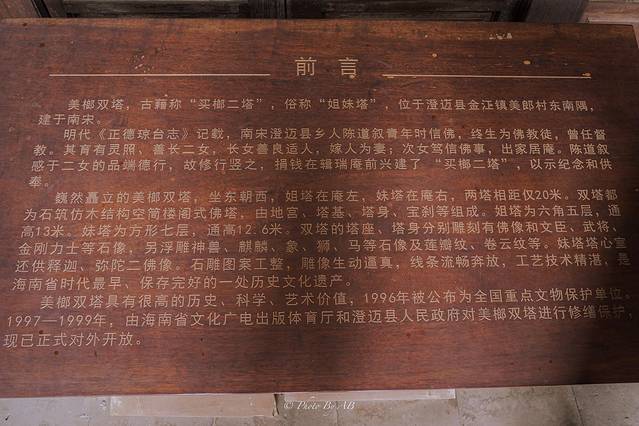 前言
美榔双塔，古籍称“买榔二塔”，俗称“姐妹塔”，位于澄迈县金江镇美郎村东南隅，
建于南宋。
明代《正德琼台志》记载，南宋澄迈县乡人陈道叙青年时信佛，终生为佛教徒，曾任督
教。其育有灵照、善长二女，长女善良适人，嫁人为妻；次女笃信佛事，出家居庵。陈道叙
感于二女的品端德行，故修行竖之，捐钱在辑瑞庵前兴建了“买榔二塔”，以示纪念和供
奉。
巍然矗立的美榔双塔，坐东朝西，姐塔在庵左，妹塔在庵右，两塔相距仅20米。双塔都
为石筑仿木结构空筒楼阁式佛塔，由地宫、塔基、塔身、宝刹等组成。姐塔为六角五层，通
高13米。妹塔为方形七层，通高12.6米。双塔的塔座、塔身分别雕刻有佛像和文臣、武将、
金刚力士等石像，另浮雕神兽、麒麟、象、狮、马等石像及莲瓣纹、卷云纹等。妹塔塔心室
还供释迦、弥陀二佛像。石雕图案工整，雕像生动逼真，线条流畅奔放，工艺技术精湛，是
海南省时代最早、保存完好的一处历史文化遗产。
美榔双塔具有很高的历史、科学、艺术价值，1996年被公布为全国重点文物保护单位。
1997—1999年，由海南省文化广电出版体育厅和澄迈县人民政府对美榔双塔进行修缮保护，
现已正式对外开放。
© Photo By AB